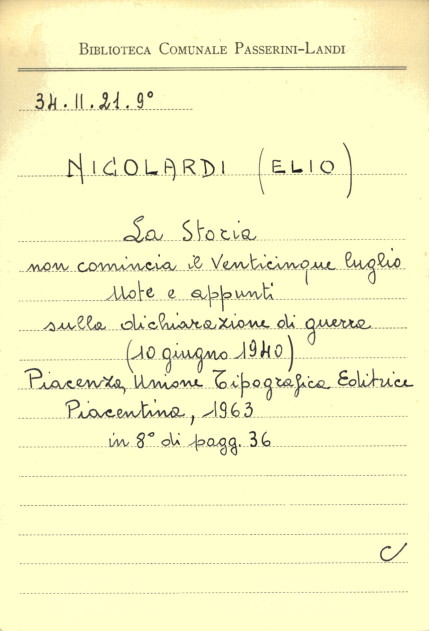 BIBLIOTECA COMUNALE PASSERINI-LANDI
34.II.21.9°
NICOLARDI (ELIO)
La Storia
non comincia il Venticinque luglio
Note e appunti
sulla dichiarazione di guerra
(10 giugno 1940)
Piacenza, Unione Tipografica Editrice
Piacentina, 1963
in 8° di pagg. 36
C